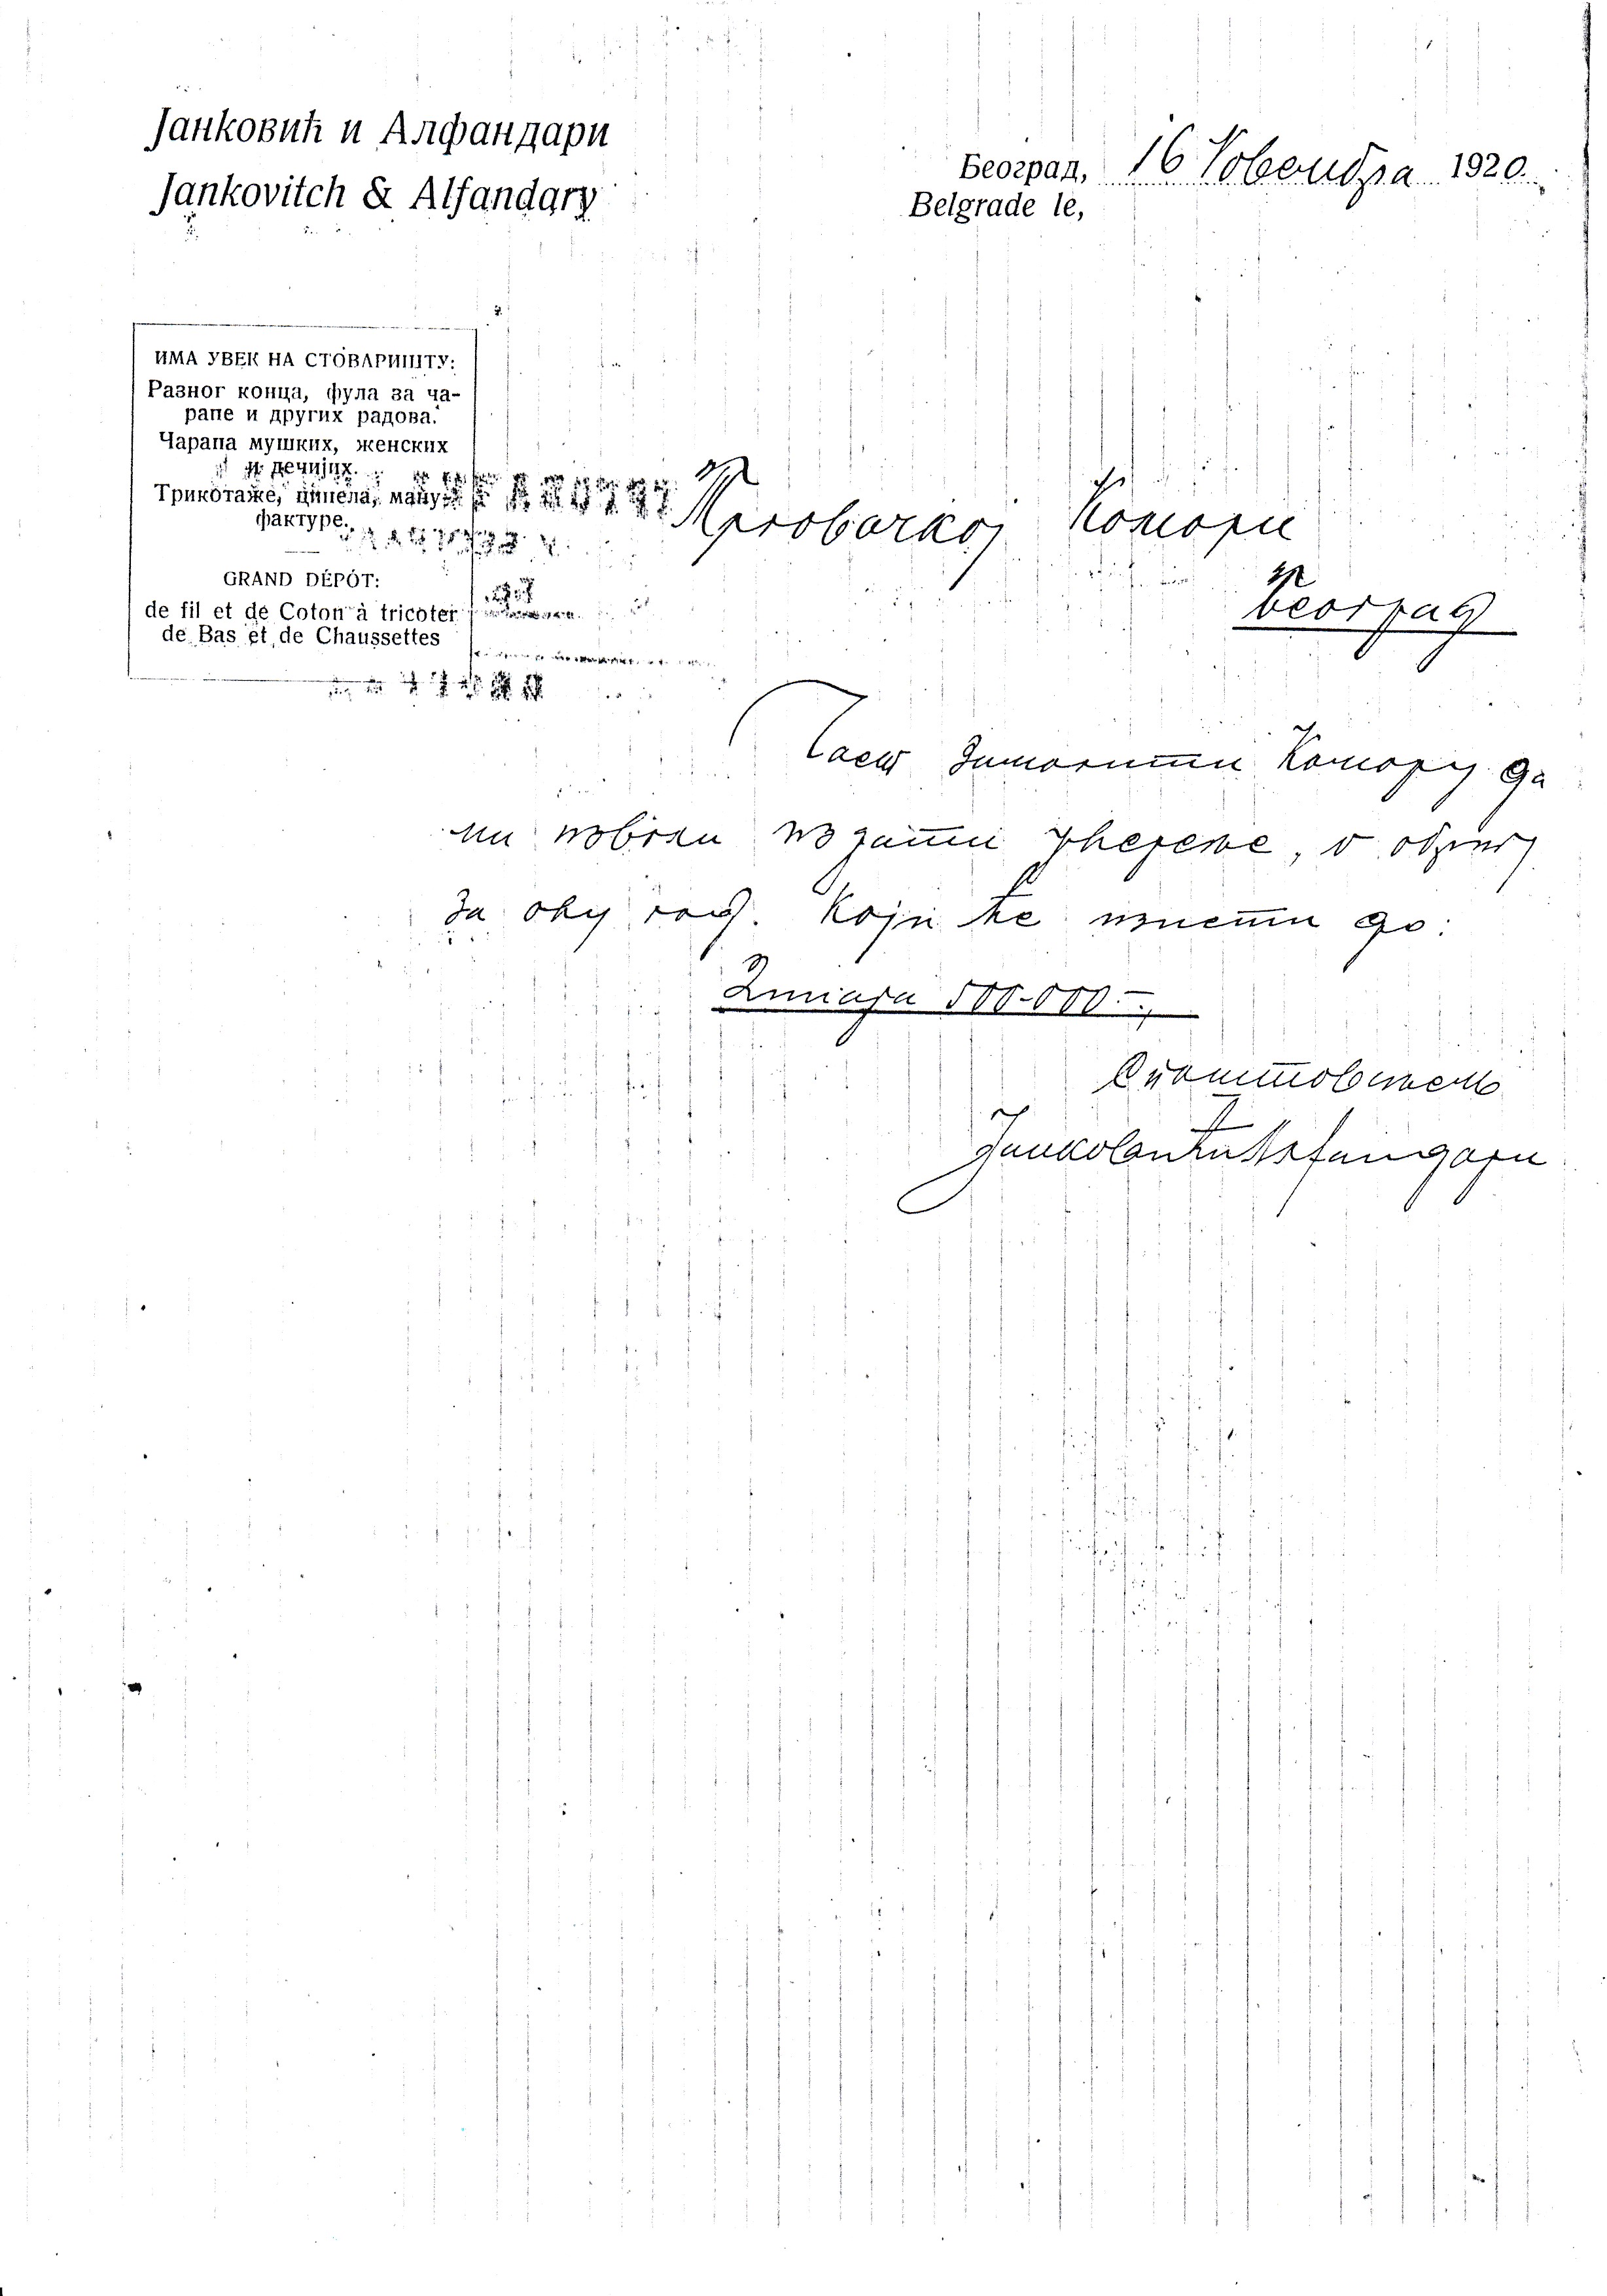 Јанковић и Алфандари
Jankovitch & Alfandary
Београд, 16 Новембра 1920.
Belgrade le,
ИМА УВЕК НА СТОВАРИШТУ:
Разног конца, фула за ча-
рапе и других радова.
Чарапа мушких, женских
и дечијих.
Трикотаже, ципела, ману-
фактуре.
GRAND DÉPÔT:
de fil et de Coton à tricoter
de Bas et de Chaussettes
Трговачкој Комори
Београд
Част замолити Комору да
ми изволи издати уверење, о
за ову год. који ће изнети до:
Динара 500.000.-
С поштовањем
Јанковић и Алфандари